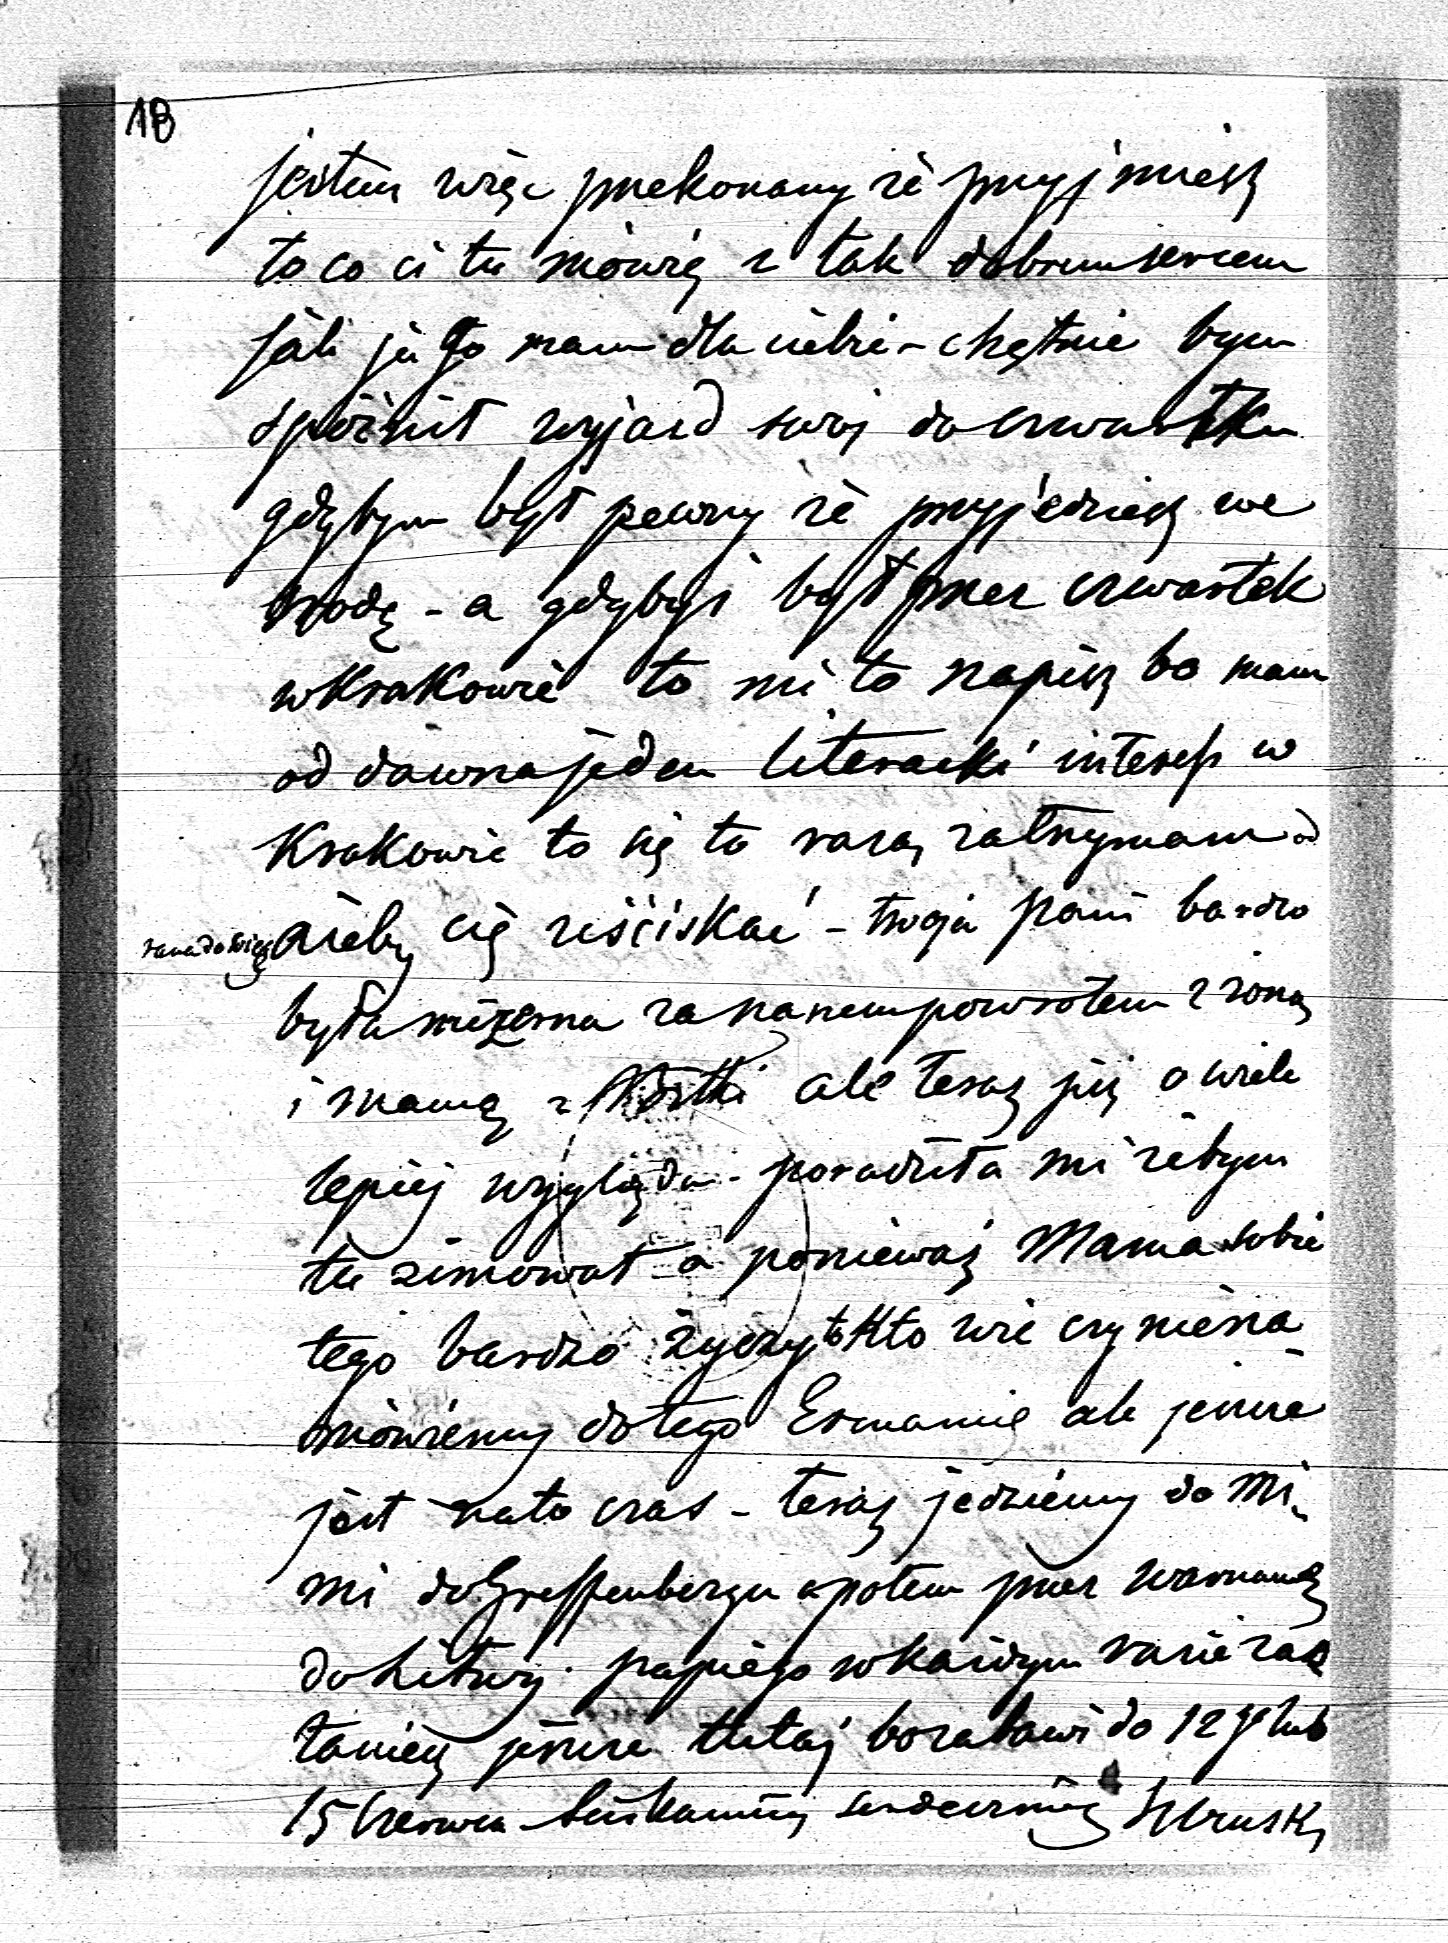 18
jestem więc przekonany że przyjmiesz
to co ci tu mówię z tak dobrem sercem
jak ja go mam dla ciebie - chętnie bym
spóźnił wyjazd swój do czwartku
gdybym był pewny że przyjedziesz we
środę - a gdybyś był przez czwartek
w Krakowie to mi to napisz bo mam
od dawna jeden literacki interes w
Krakowie to się tu zatrzymam
ażeby cię uściskać - twoja pani bardzo
była mizerna za panem powrotem z żoną
i mamą z ale teraz już o wiele
lepiej wygląda - poradziła mi żebym
tu zimował - a ponieważ Mama sobie
tego bardzo życzy to Kto wie czy nie na
mówiemy do tego Ermanię ale jeszcze
jest na to czas - teraz jedziemy do Mi-
mi do Greffenbergu a potem przez Warszawę
do Litwy. papiego w każdym razie zas
taniesz jeszcze tutaj bo zabawi do 12go lub
15 Czerwca - serdecznie